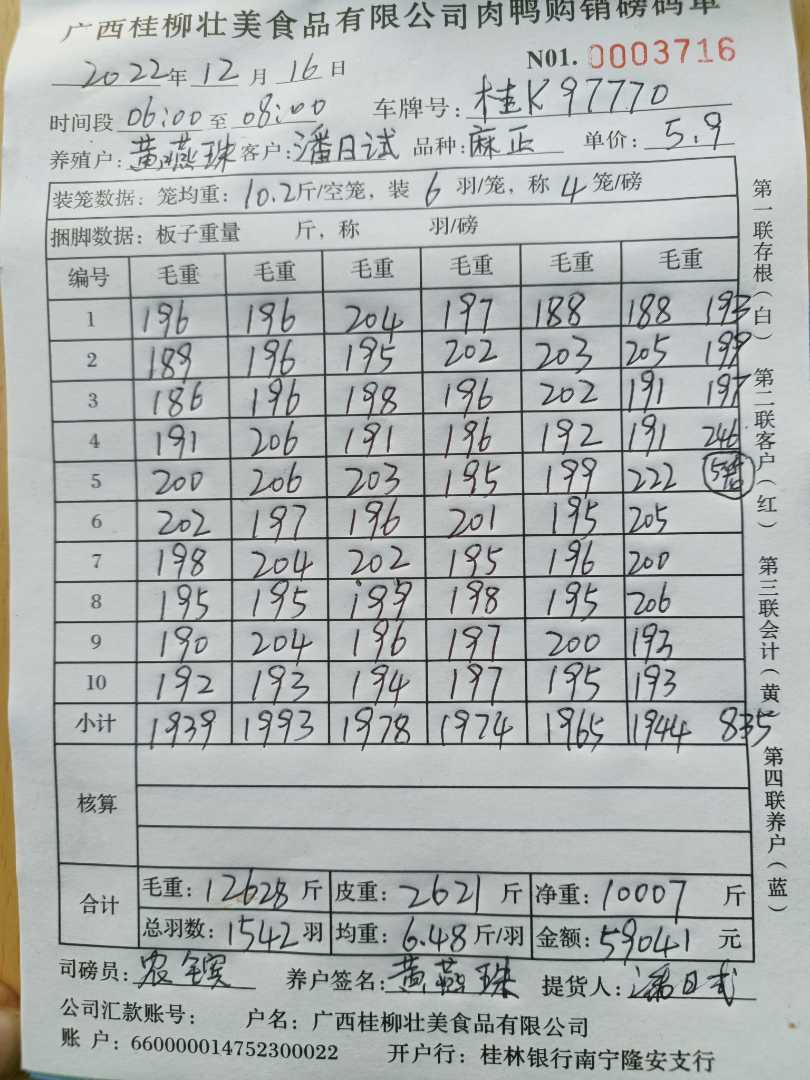 广西桂柳壮美食品有限公司肉鸭购销磅码单
2022年12月16日 N01. 0003716
时间段 06:00 至 08:00 车牌号: 桂K97770
养殖户: 黄燕珠 客户: 潘日试 品种: 麻正 单价: 5.9
装笼数据: 笼均重: 10.2斤/空笼, 装 6 羽/笼, 称 4 笼/磅
捆脚数据: 板子重量 斤, 称 羽/磅
编号 毛重 毛重 毛重 毛重 毛重 毛重
1 196 196 204 197 188 188 193
2 189 196 195 202 203 205 199
3 186 196 198 196 202 191 197
4 191 206 191 196 192 191 246
5 200 206 203 195 199 222
6 202 197 196 201 195 205
7 198 204 202 195 196 200
8 195 195 199 198 195 206
9 190 204 196 197 200 193
10 192 193 194 197 195 193
小计 1939 1993 1978 1974 1965 1944 835
核算
合计 毛重: 12628 斤 皮重: 2621 斤 净重: 10007 斤
总羽数: 1542 羽 均重: 6.48 斤/羽 金额: 59041 元
司磅员: 养户签名: 黄燕珠 提货人: 潘日试
公司汇款账号: 户名: 广西桂柳壮美食品有限公司
账 户: 660000014752300022 开户行: 桂林银行南宁隆安支行
第一联存根(白)
第二联客户(红)
第三联会计(黄)
第四联养户(蓝)